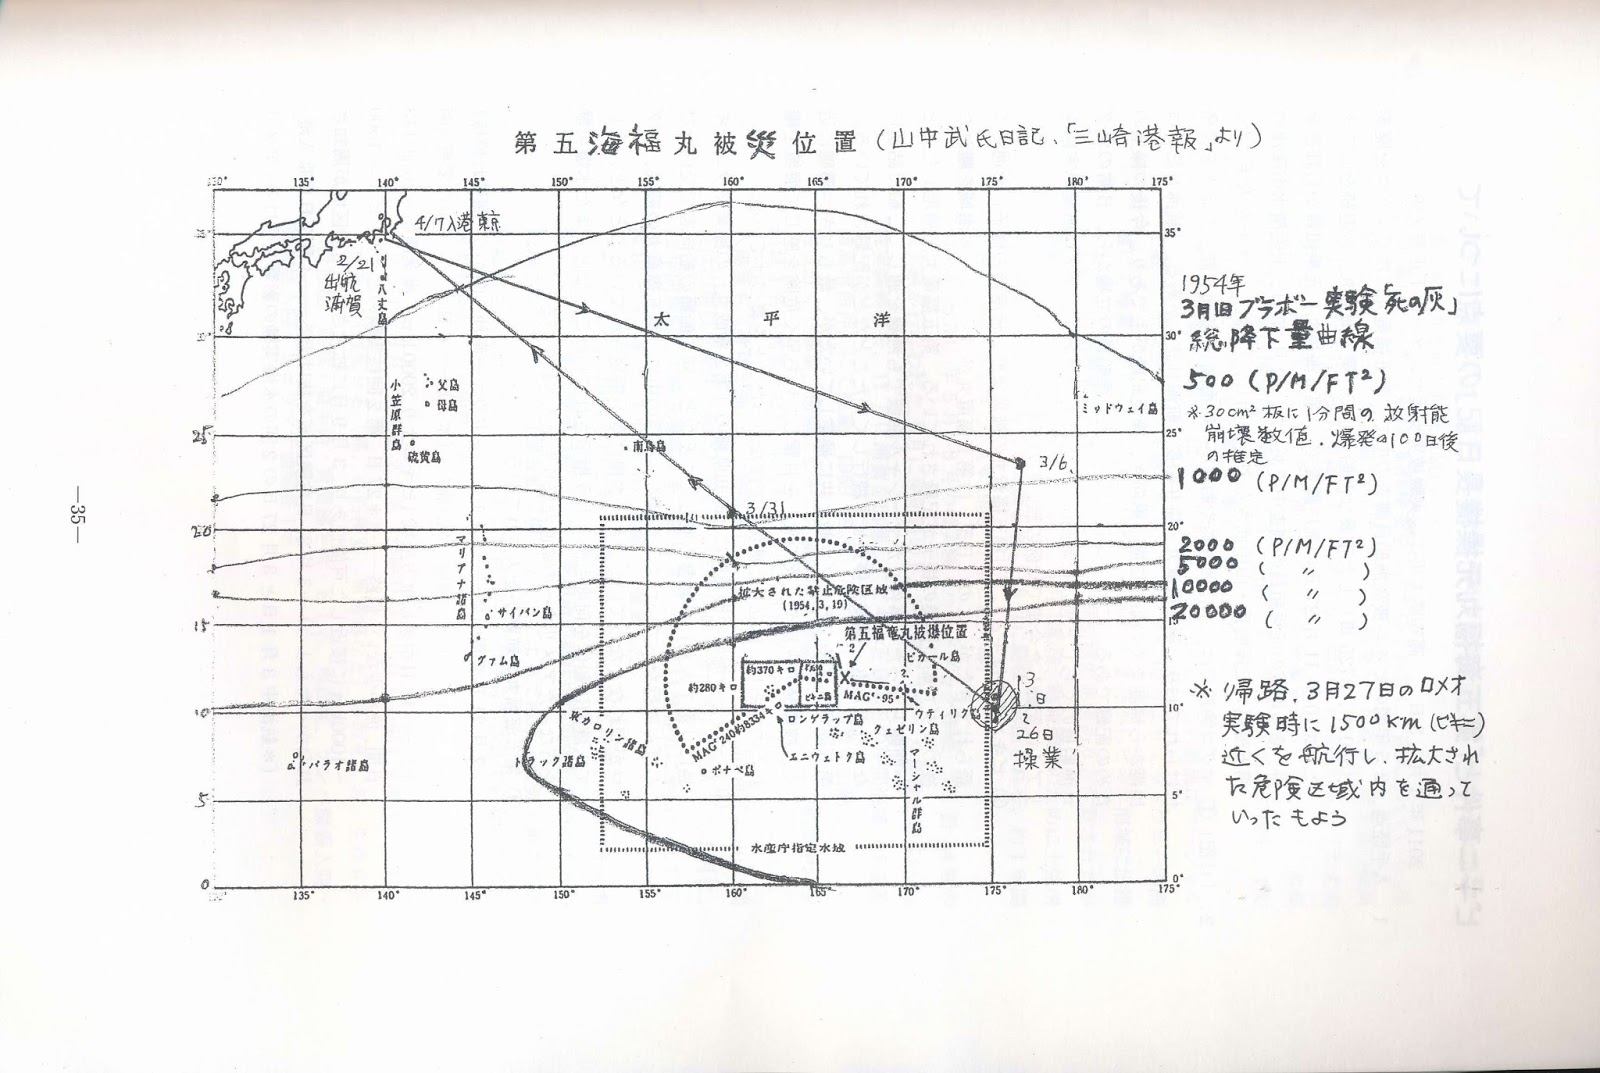 第五海福丸被災位置(山中武氏日記、「三崎港報」より)
135° 140° 145° 150° 155° 160° 165° 170° 175° 180° 175°
4/7入港東京
35°
2/21
出航
浦賀
八丈島
太平洋
1954年
3月1日ブラボー実験「死の灰」
総降下量曲線
30°
500 (P/M/FT²)
小笠原群島
父島
母島
ミッドウェイ島
※30cm²板に1分間の放射能
崩壊数値.爆発の100日後
の推定
25
25°
硫黄島
南鳥島
3/6
1000 (P/M/FT²)
3/31
20
20°
マリアナ諸島
2000 (P/M/FT²)
5000 ( 〃 )
10000 ( 〃 )
20000 ( 〃 )
拡大された禁止危険区域
(1954.3.19)
サイパン島
15
15°
第五福竜丸被爆位置
グァム島
ビカール島
約370キロ
約280キロ
ビキニ島
MAG・95°
ウティリク島
10
10°
ロンゲラップ島
クェゼリン島
13
日
26日
操業
※帰路.3月27日のロメオ
実験時に1500km(ビキニ)
近くを航行し.拡大され
た危険区域内を通って
いったもよう
東カロリン諸島
トラック諸島
パラオ諸島
ポナペ島
エニウェトク島
マーシャル群島
5
5°
水産庁指定水域
0
0°
130° 135° 140° 145° 150° 155° 160° 165° 170° 175° 180° 175°
—35—